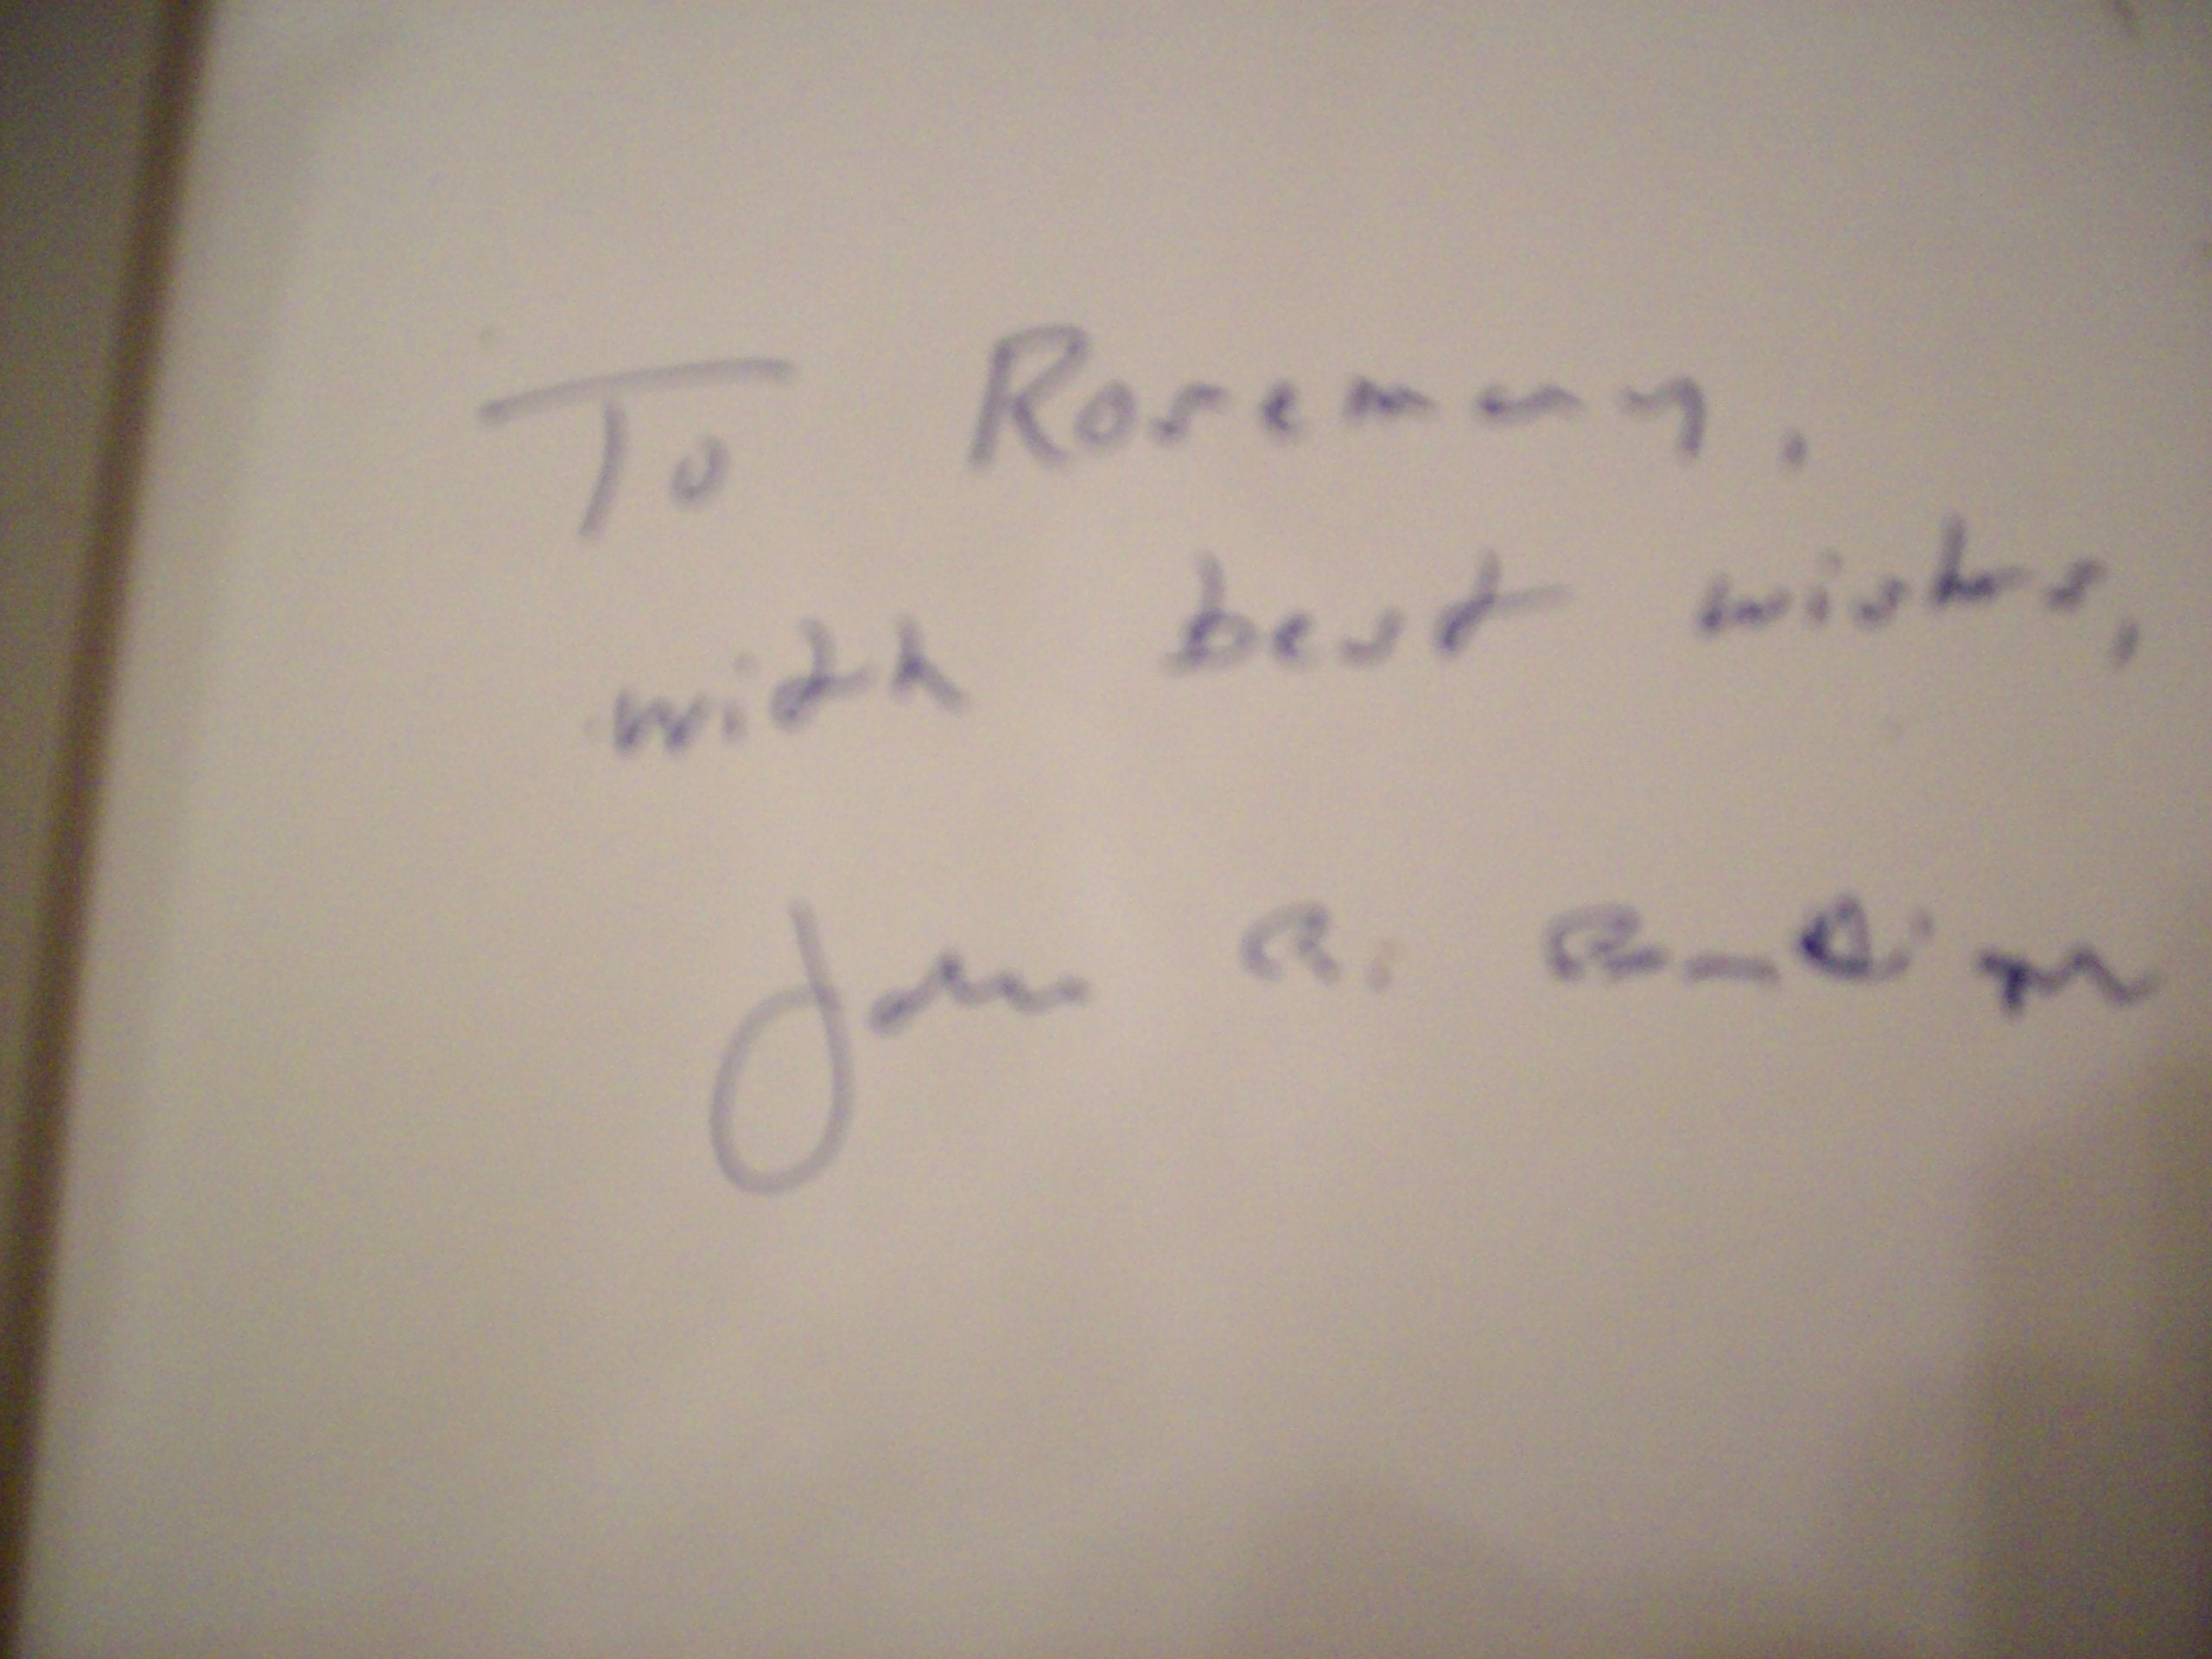 To Rosemary,
with best wishes,
John R.